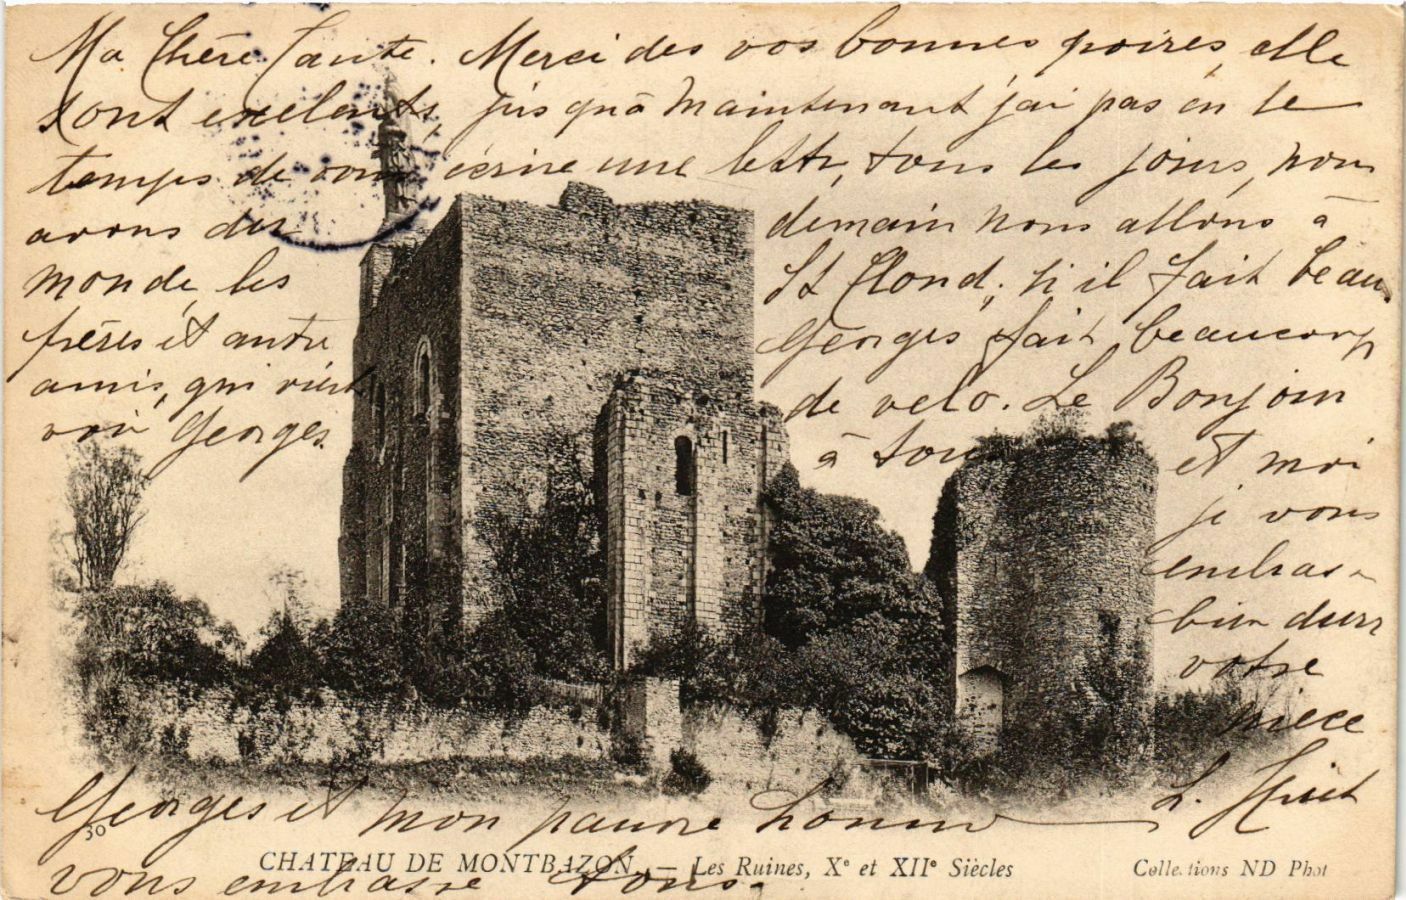 Ma Chère Tante. Merci des vos bonnes poires, elle
sont exelents, jusqu'à maintenant j'ai pas en le
temps de vous écrire une lettr, tous les jours, nous
avons du
monde, les
frères et autre
amis, qui vient
voir Georges.
demain nous allons à
St Cloud, si il fait beau
Georges fait beaucoup
de velo. Le Bonjour
à tous
et moi
je vous
embras-
bien durr
votre
niece
L. Huet
Georges et mon pauvre homme
vous embrasse tous.
30
CHATEAU DE MONTBAZON. — Les Ruines, Xe et XIIe Siècles
Collections ND Phot